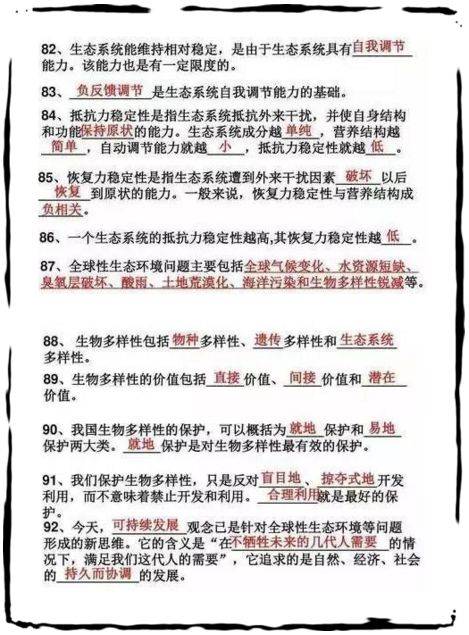 82、生态系统能维持相对稳定，是由于生态系统具有自我调节
能力。该能力也是有一定限度的。
83、负反馈调节是生态系统自我调节能力的基础。
84、抵抗力稳定性是指生态系统抵抗外来干扰，并使自身结构
和功能保持原状的能力。生态系统成分越单纯，营养结构越
简单，自动调节能力就越小，抵抗力稳定性就越低。
85、恢复力稳定性是指生态系统遭到外来干扰因素破坏以后
恢复到原状的能力。一般来说，恢复力稳定性与营养结构成
负相关。
86、一个生态系统的抵抗力稳定性越高,其恢复力稳定性越低。
87、全球性生态环境问题主要包括全球气候变化、水资源短缺、
臭氧层破坏、酸雨、土地荒漠化、海洋污染和生物多样性锐减等。
88、生物多样性包括物种多样性、遗传多样性和生态系统
多样性。
89、生物多样性的价值包括直接价值、间接价值和潜在
价值。
90、我国生物多样性的保护，可以概括为就地保护和易地
保护两大类。就地保护是对生物多样性最有效的保护。
91、我们保护生物多样性，只是反对盲目地、掠夺式地开发
利用，而不意味着禁止开发和利用。合理利用就是最好的保
护。
92、今天，可持续发展观念已是针对全球性生态环境等问题
形成的新思维。它的含义是“在不牺牲未来的几代人需要的情
况下，满足我们这代人的需要”，它追求的是自然、经济、社会
的持久而协调的发展。